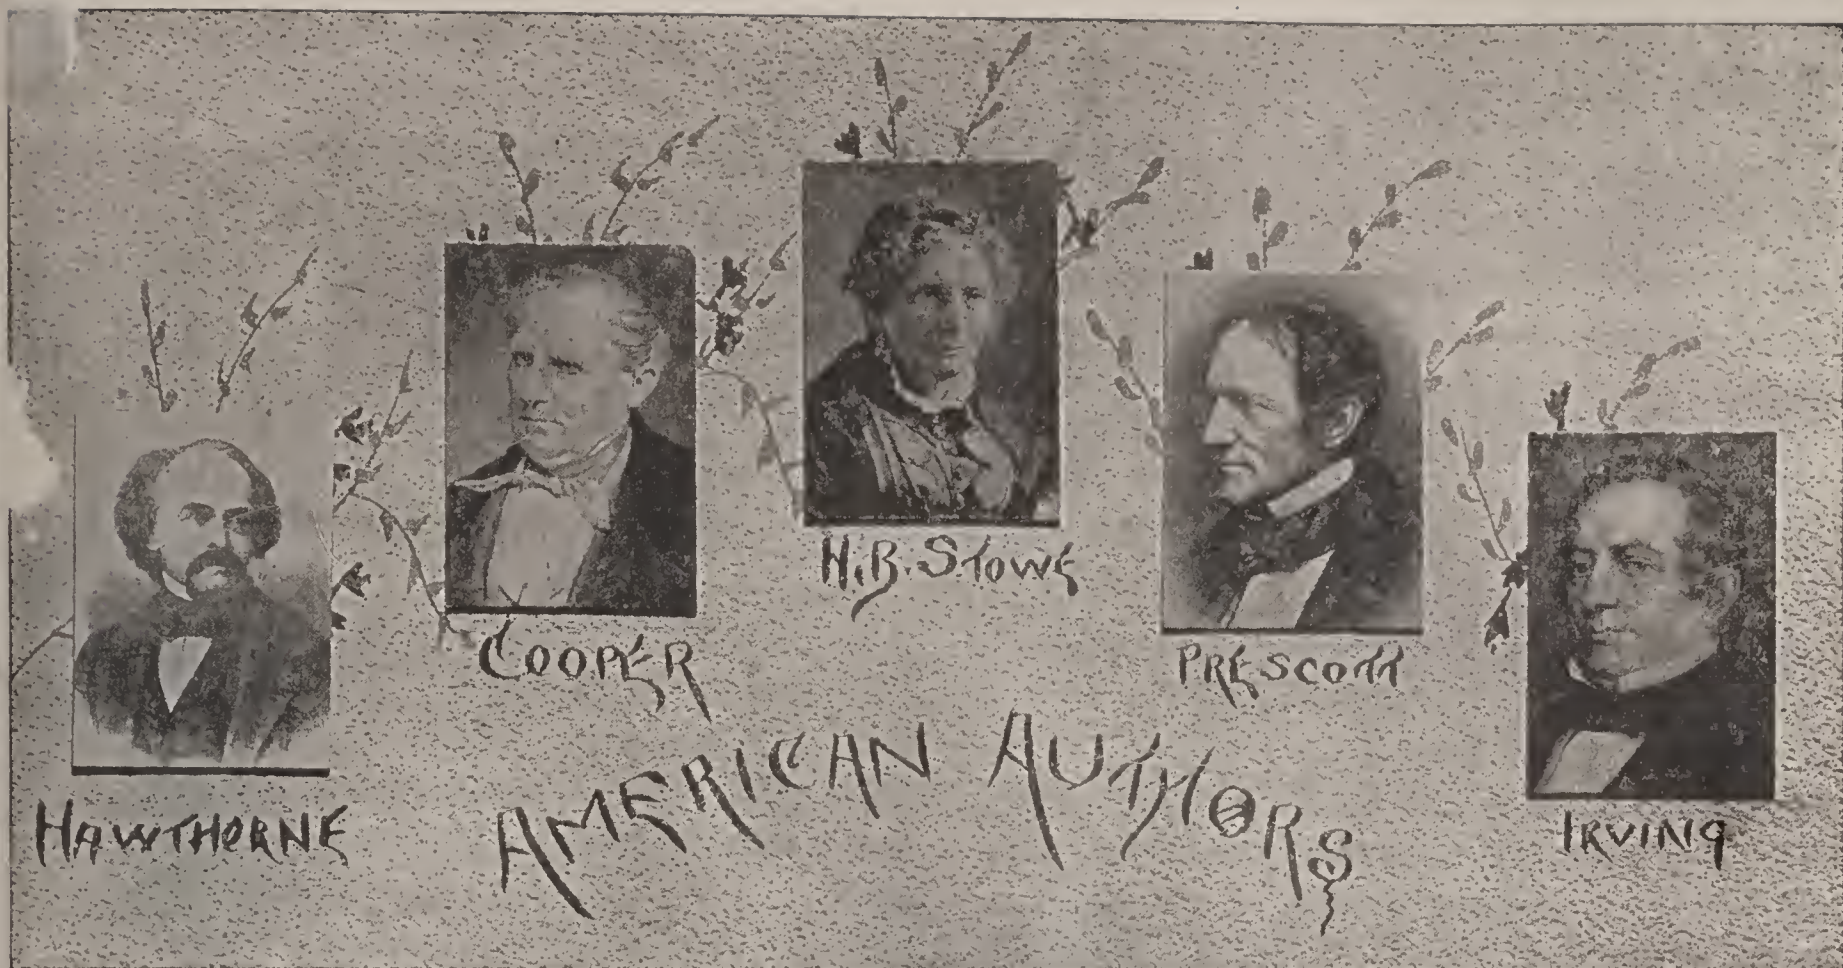 HAWTHORNE
COOPER
H.B. STOWE
PRESCOTT
IRVING
AMERICAN AUTHORS